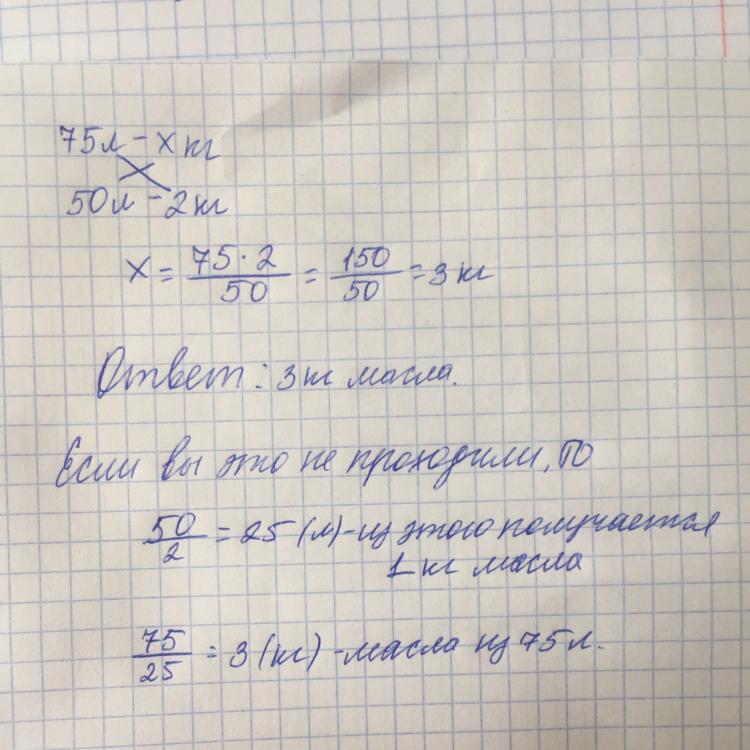 75л - х кг
50л - 2 кг
х = 75·2/50 = 150/50 = 3 кг
Ответ: 3 кг масла.
Если вы это не проходили, то
50/2 = 25 (л) - из этого получается
1 кг масла
75/25 = 3 (кг) - масла из 75 л.